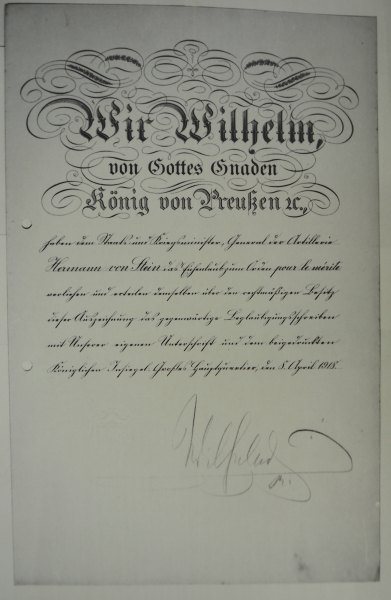 Wir Wilhelm,
von Gottes Gnaden
König von Preußen ꝛc.,
haben dem Staats und Kriegsminister, General der Artillerie
Hermann von Stein das Eichenlaub zum Orden pour le mérite
verliehen und erteilen demselben über den rechtmäßigen Besitz
dieser Auszeichnung das gegenwärtige Beglaubigungsschreiben
mit Unserer eigenen Unterschrift und dem beigedruckten
Königlichen Insiegel. Großes Hauptquartier, den 8. April 1918.
Wilhelm